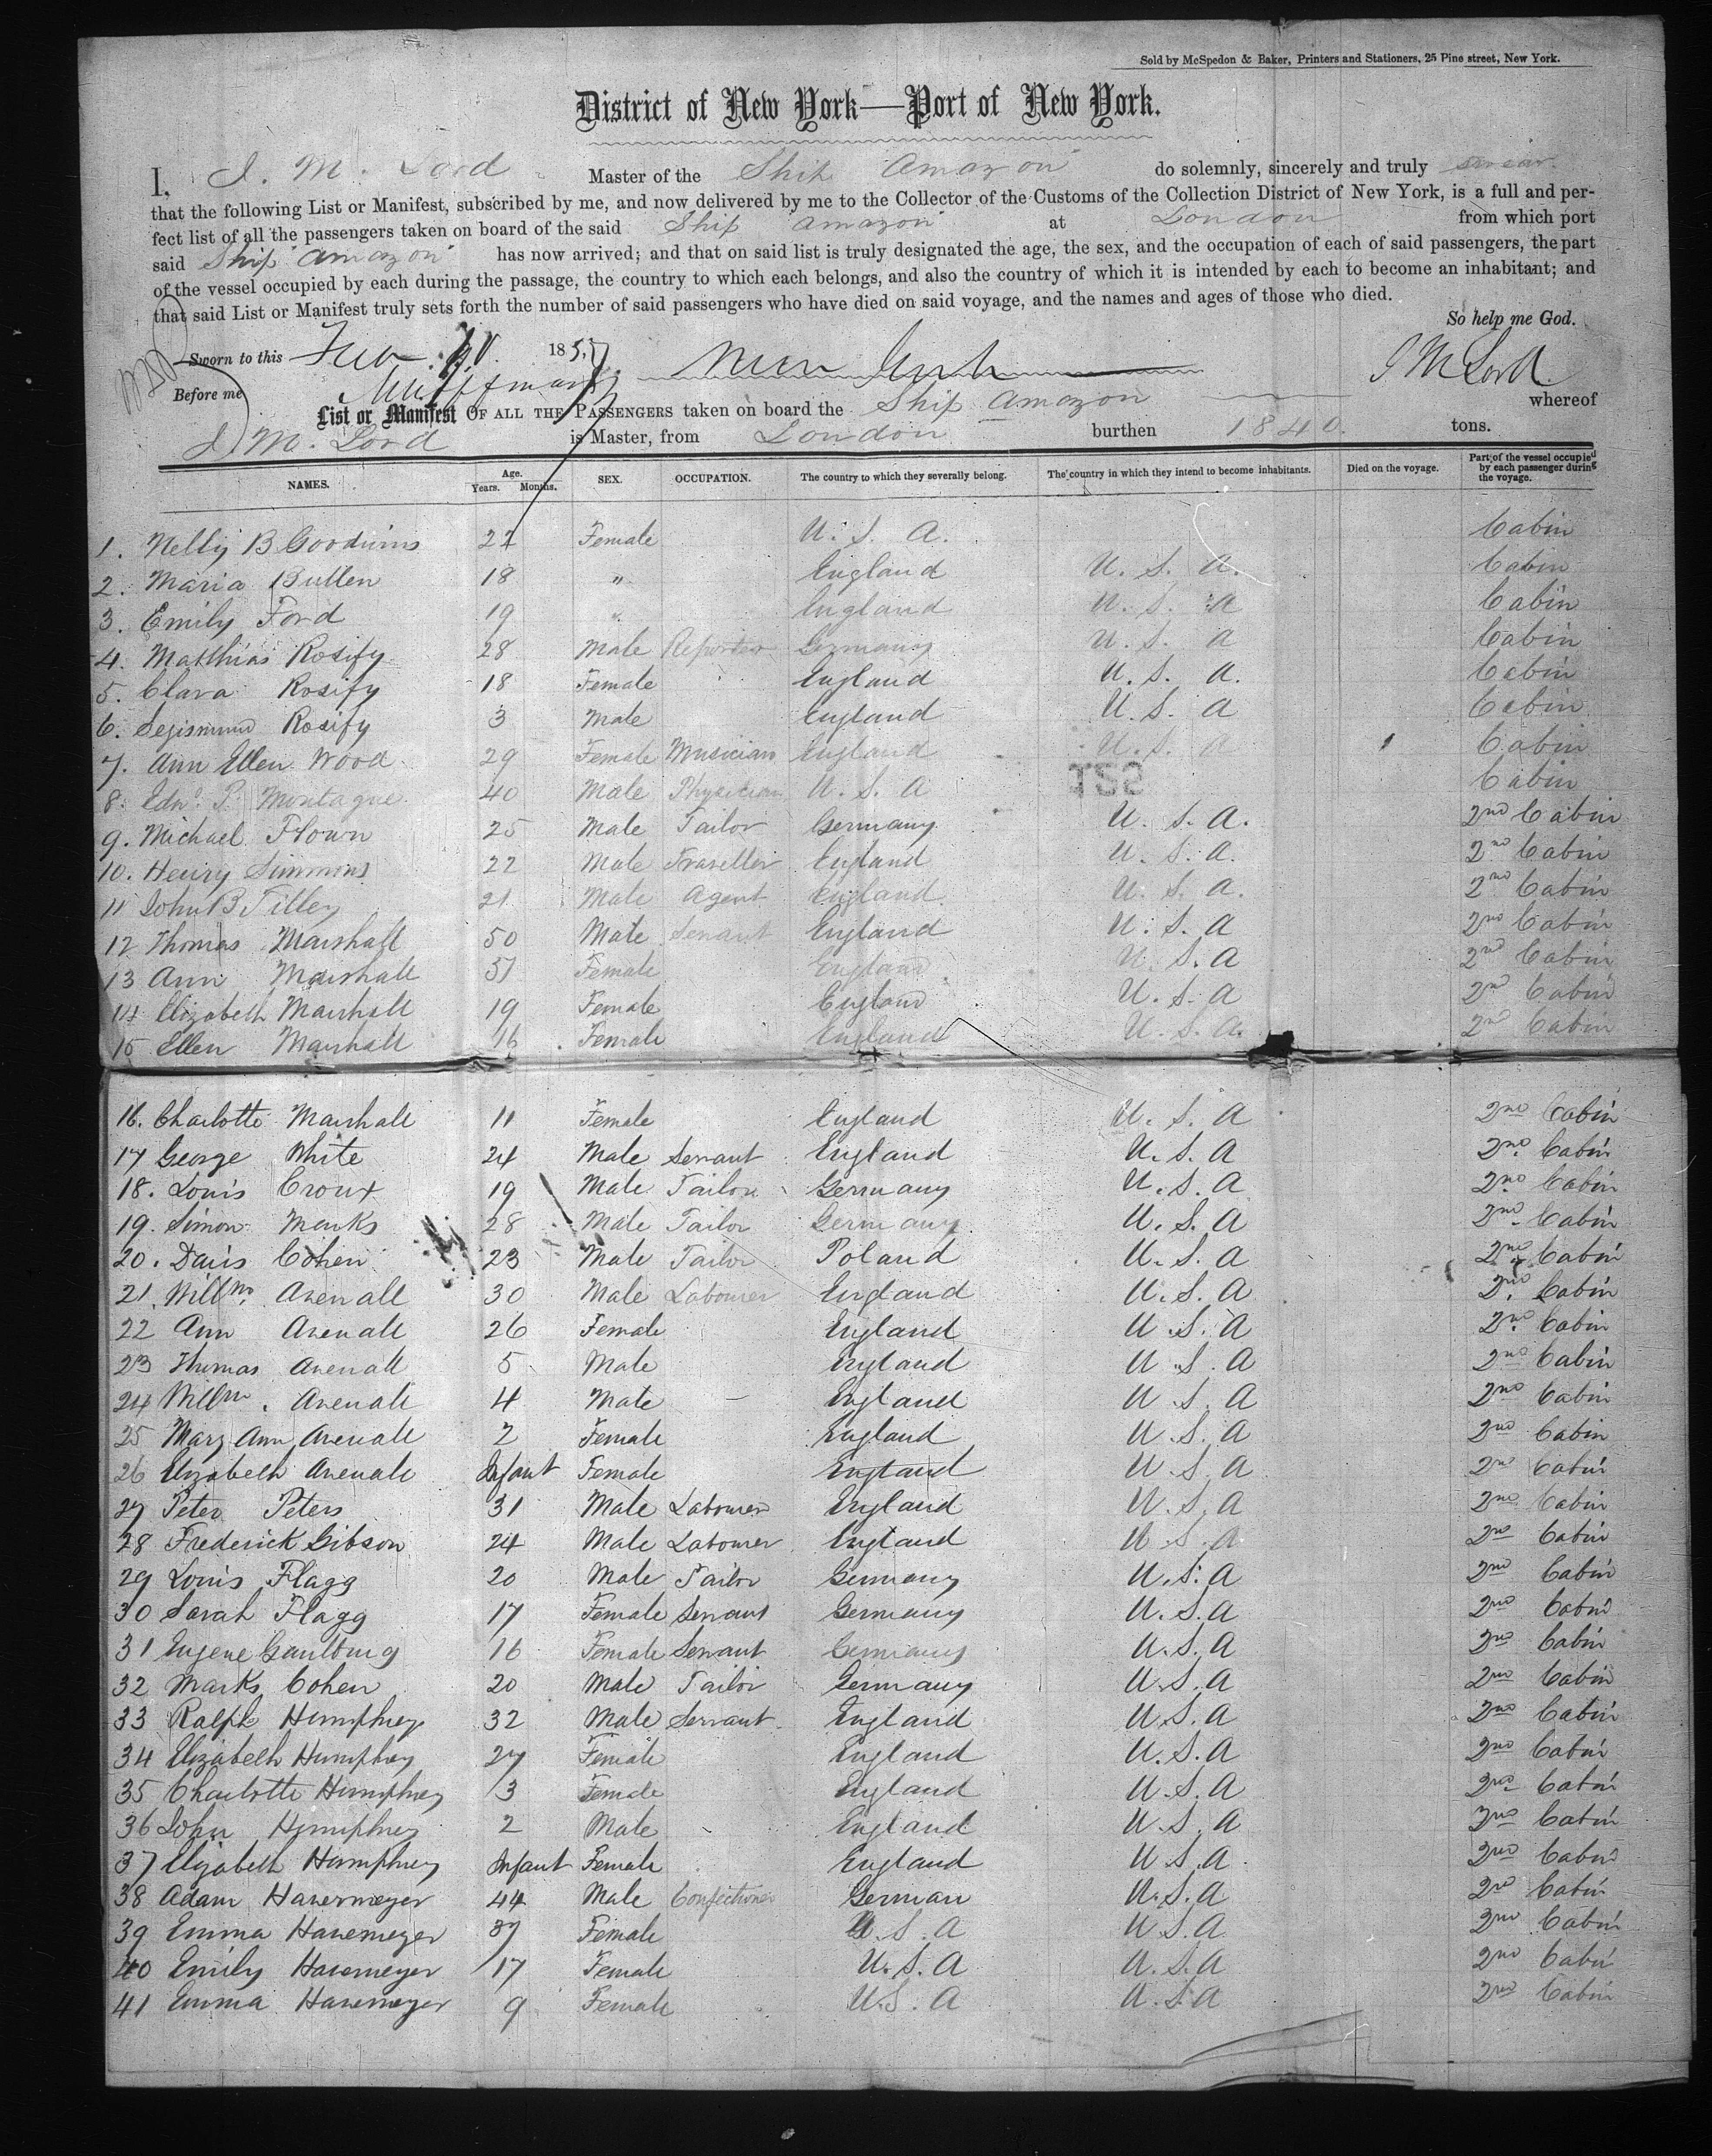 Sold by McSpedon & Baker, Printers and Stationers, 25 Pine street, New York.
District of New York—Port of New York.
I, J. M. Lord Master of the Ship Amazon do solemnly, sincerely and truly swear
that the following List or Manifest, subscribed by me, and now delivered by me to the Collector of the Customs of the Collection District of New York, is a full and per-
fect list of all the passengers taken on board of the said Ship Amazon at London from which port
said Ship Amazon has now arrived; and that on said list is truly designated the age, the sex, and the occupation of each of said passengers, the part
of the vessel occupied by each during the passage, the country to which each belongs, and also the country of which it is intended by each to become an inhabitant; and
that said List or Manifest truly sets forth the number of said passengers who have died on said voyage, and the names and ages of those who died.
So help me God.
Sworn to this 185 J M Lord
Before me
List or Manifest OF ALL THE PASSENGERS taken on board the Ship Amazon whereof
J M. Lord is Master, from London burthen 1840. tons.
NAMES. Age. Years. Months. SEX. OCCUPATION. The country to which they severally belong. The country in which they intend to become inhabitants. Died on the voyage. Part of the vessel occupied by each passenger during the voyage.
1. Nelly B Goodwins Female U. S. A. Cabin
2. Maria Bullen 18 " England U. S. A. Cabin
3. Emily Ford 19 " England U. S. A Cabin
4. Matthias Rosify 28 Male Reporter Germany U. S. A Cabin
5. Clara Rosify 18 Female England U. S. A. Cabin
6. Segismund Rosify 3 Male England U. S. A Cabin
7. Ann Ellen Wood 29 Female Musician England U. S. A Cabin
8. Edwd. P. Montague 40 Male Physician U. S. A Cabin
9. Michael Flown 25 Male Tailor Germany U. S. A. 2nd Cabin
10. Henry Simmons 22 Male Traveller England U. S. A. 2nd Cabin
11 John B Tilley 21 Male Agent England U. S. A. 2nd Cabin
12 Thomas Marshall 50 Male Servant England U. S. A 2nd Cabin
13 Ann Marshall 51 Female England U. S. A 2nd Cabin
14 Elizabeth Marshall 19 Female England U. S. A 2nd Cabin
15 Ellen Marshall 16 Female England U. S. A. 2nd Cabin
16. Charlotte Marshall 11 Female England U. S. A 2nd Cabin
17 George White 24 Male Servant England U. S. A 2nd Cabin
18. Louis Croux 19 Male Tailor Germany U. S. A 2nd Cabin
19. Simon Marks 28 Male Tailor Germany U. S. A 2nd Cabin
20. Davis Cohen 23 Male Tailor Poland U. S. A 2nd Cabin
21. Willm. Avenall 30 Male Labourer England U. S. A 2nd Cabin
22 Ann Avenall 26 Female England U. S. A 2nd Cabin
23 Thomas Avenall 5 Male England U. S. A 2nd Cabin
24 Willm. Avenall 4 Male England U. S. A 2nd Cabin
25 Mary Ann Avenall 2 Female England U. S. A 2nd Cabin
26 Elizabeth Avenall Infant Female England U. S. A 2nd Cabin
27 Peter Peters 31 Male Labourer England U. S. A 2nd Cabin
28 Frederick Gibson 24 Male Labourer England U. S. A 2nd Cabin
29 Louis Flagg 20 Male Tailor Germany U. S. A 2nd Cabin
30 Sarah Flagg 17 Female Servant Germany U. S. A 2nd Cabin
31 Eugene 16 Female Servant Germany U. S. A 2nd Cabin
32 Marks Cohen 20 Male Tailor Germany U. S. A 2nd Cabin
33 Ralph Humphrey 32 Male Servant England U. S. A 2nd Cabin
34 Elizabeth Humphrey 27 Female England U. S. A 2nd Cabin
35 Charlotte Humphrey 3 Female England U. S. A 2nd Cabin
36 John Humphrey 2 Male England U. S. A 2nd Cabin
37 Elizabeth Humphrey Infant Female England U. S. A 2nd Cabin
38 Adam Havemeyer 44 Male Confectioner German U. S. A 2nd Cabin
39 Emma Havemeyer 37 Female U. S. A U. S. A 2nd Cabin
40 Emily Havemeyer 17 Female U. S. A U. S. A 2nd Cabin
41 Emma Havemeyer 9 Female U. S. A U. S. A 2nd Cabin